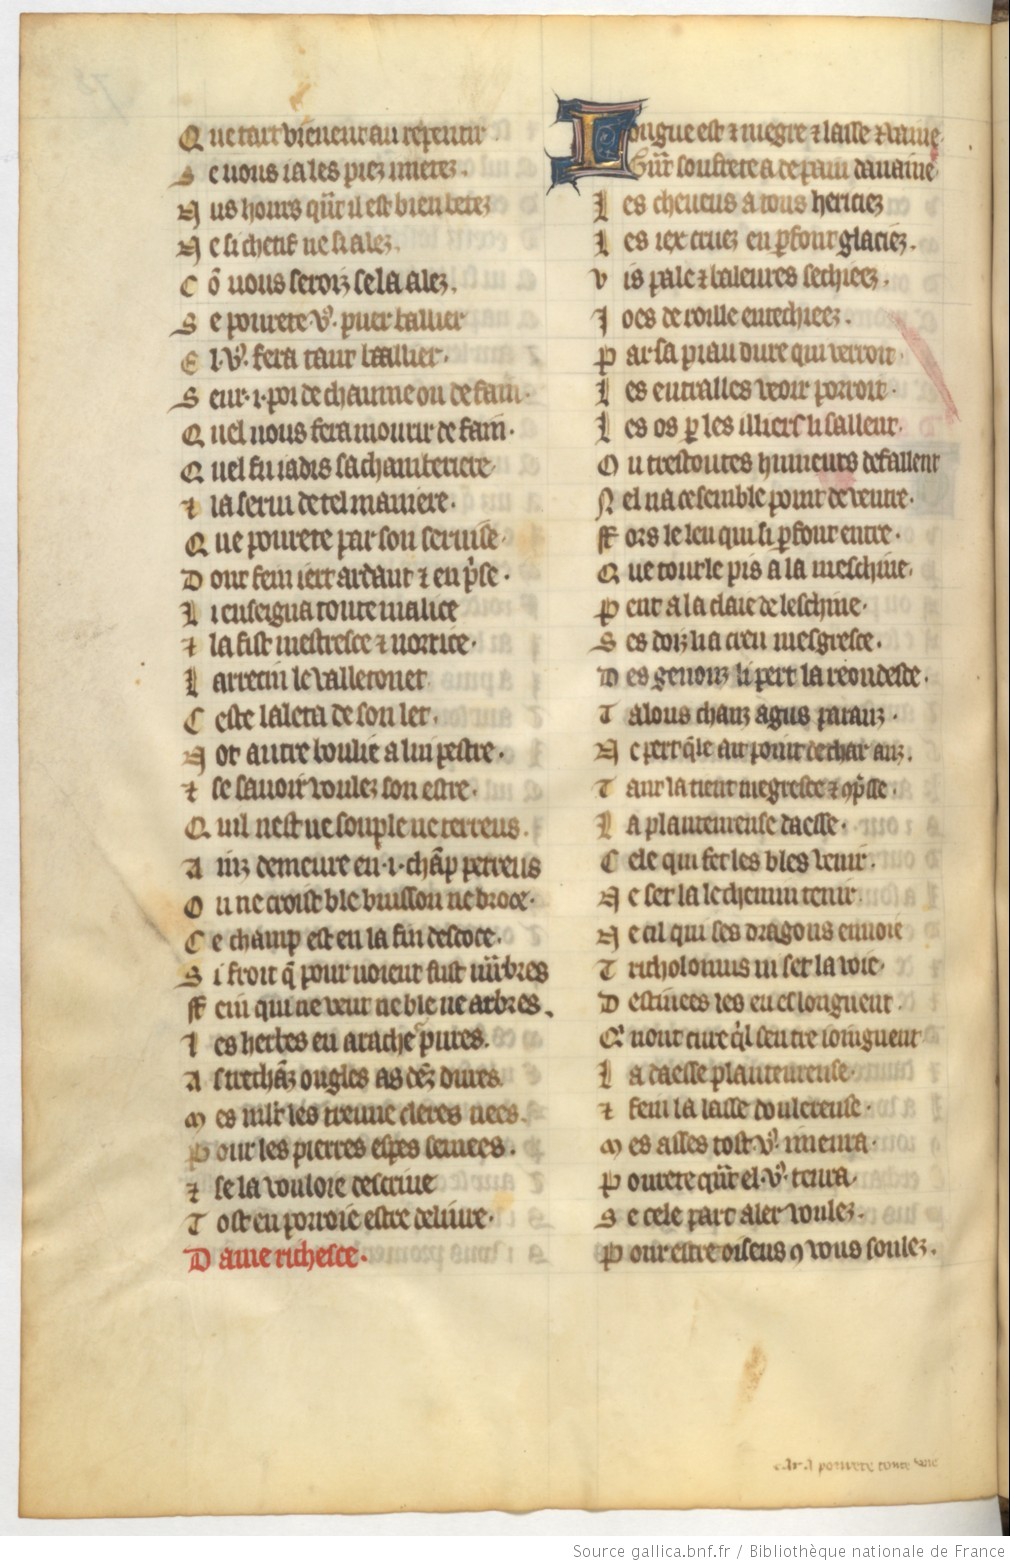 Que tart vienent au repentir
Se vous ia les piez i metez.
Nus hours qñt il est bien betez
Ne si chetif ne si alez.
Cõ vous seroiz se la alez.
Se pourete vͦ. puet baillier
El vͦ. fera tant baallier.
Seur .i. poi de chaume ou de fain.
Quel vous fera mourir de fain.
Quel fu iadis sa chamberiere
⁊ la serui de tel maniere.
Que pourete par son seruise.
Dont fein iert ardant ⁊ enpͥse.
Li enseigna toute malice
⁊ la fist mestresce ⁊ norrice.
Larrecin le valletonet
Ceste laleta de son let.
Not autre boulie a lui pestre.
⁊ se sauoir voulez son estre.
Quil nest ne souple ne terreus.
Ainz demeure en .i. chãp perreus
Ou ne croist ble buisson ne broce.
Ce champ est en la fin descoce.
Si froit q̃ pour noient fust mabres
Fein qui ne veut ne ble ne arbres.
Les herbes en arache pures.
As trechãz ongles as dẽz dures.
Mes mlt les treuue cleres nees.
Pour les pierres espes semees.
⁊ se la vouloie descriue
Tost en porroie estre deliure.
Dame richesce.
Longue est ⁊ megre ⁊ lasse ⁊ vaine
Gñt soufrete a de pain dauaine
Les cheueus a tous hericiez
Les iex cruez en ꝑfont glaciez.
Vis pale ⁊ baleures sechiees.
Joes de roille entechiees.
Par sa piau dure qui verroit
Les entralles veoir porroit.
Les os ꝑ les illiers li saillent.
Ou trestoutes humeurs defallent
Nel na ce semble point de ventre.
Fors le leu qui si ꝑfont entre.
Que tout le pis a la meschine.
Pent a la claie de leschine.
Ses doiz li a creu mesgresce.
Des genouz li pert la reondesce.
Talons chauz agus paranz.
Ne pert q̃le ait point de char anz.
Tant la tient megresce ⁊ ꝯpͥsse.
La planteureuse daesse.
Cele qui fet les bles venir.
Ne set la le chemin tenir
Ne cil qui ses dragons enuoie
Tricholomus ni set la voie.
Destinees les en eslongnent.
Qͥ nont cure qͥl sentre ioingnent
La daesse planteureuse.
⁊ fein la lasse doulereuse.
Mes asses tost vͦ. i menra.
Pourete qñt el vͦ. tenra.
Se cele part aler voulez.
Pour estre oiseus ꝯ vous soulez.
car a pouvrete toute vaie
Source gallica.bnf.fr / Bibliothèque nationale de France